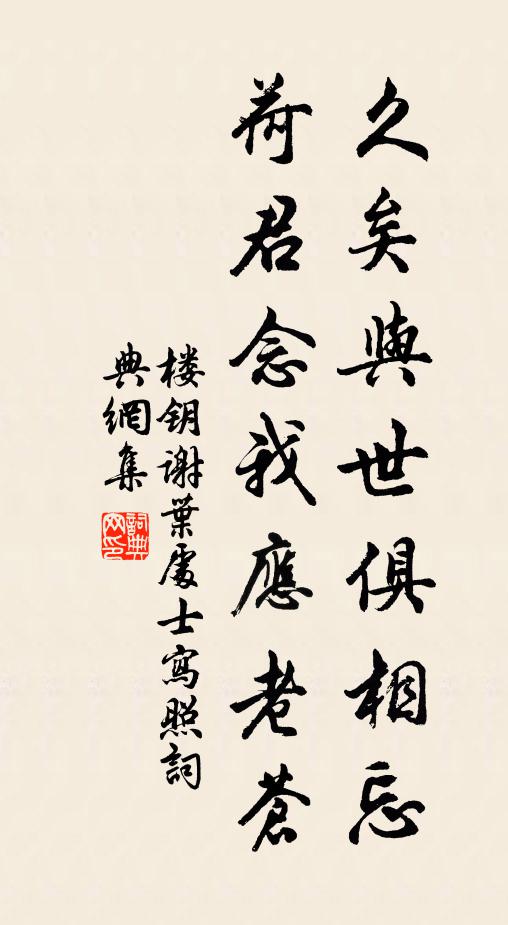 久矣與世俱相忘
荷君念我應老蒼
楼钥谢葉處士寫照詞
典網集
詞典
网印